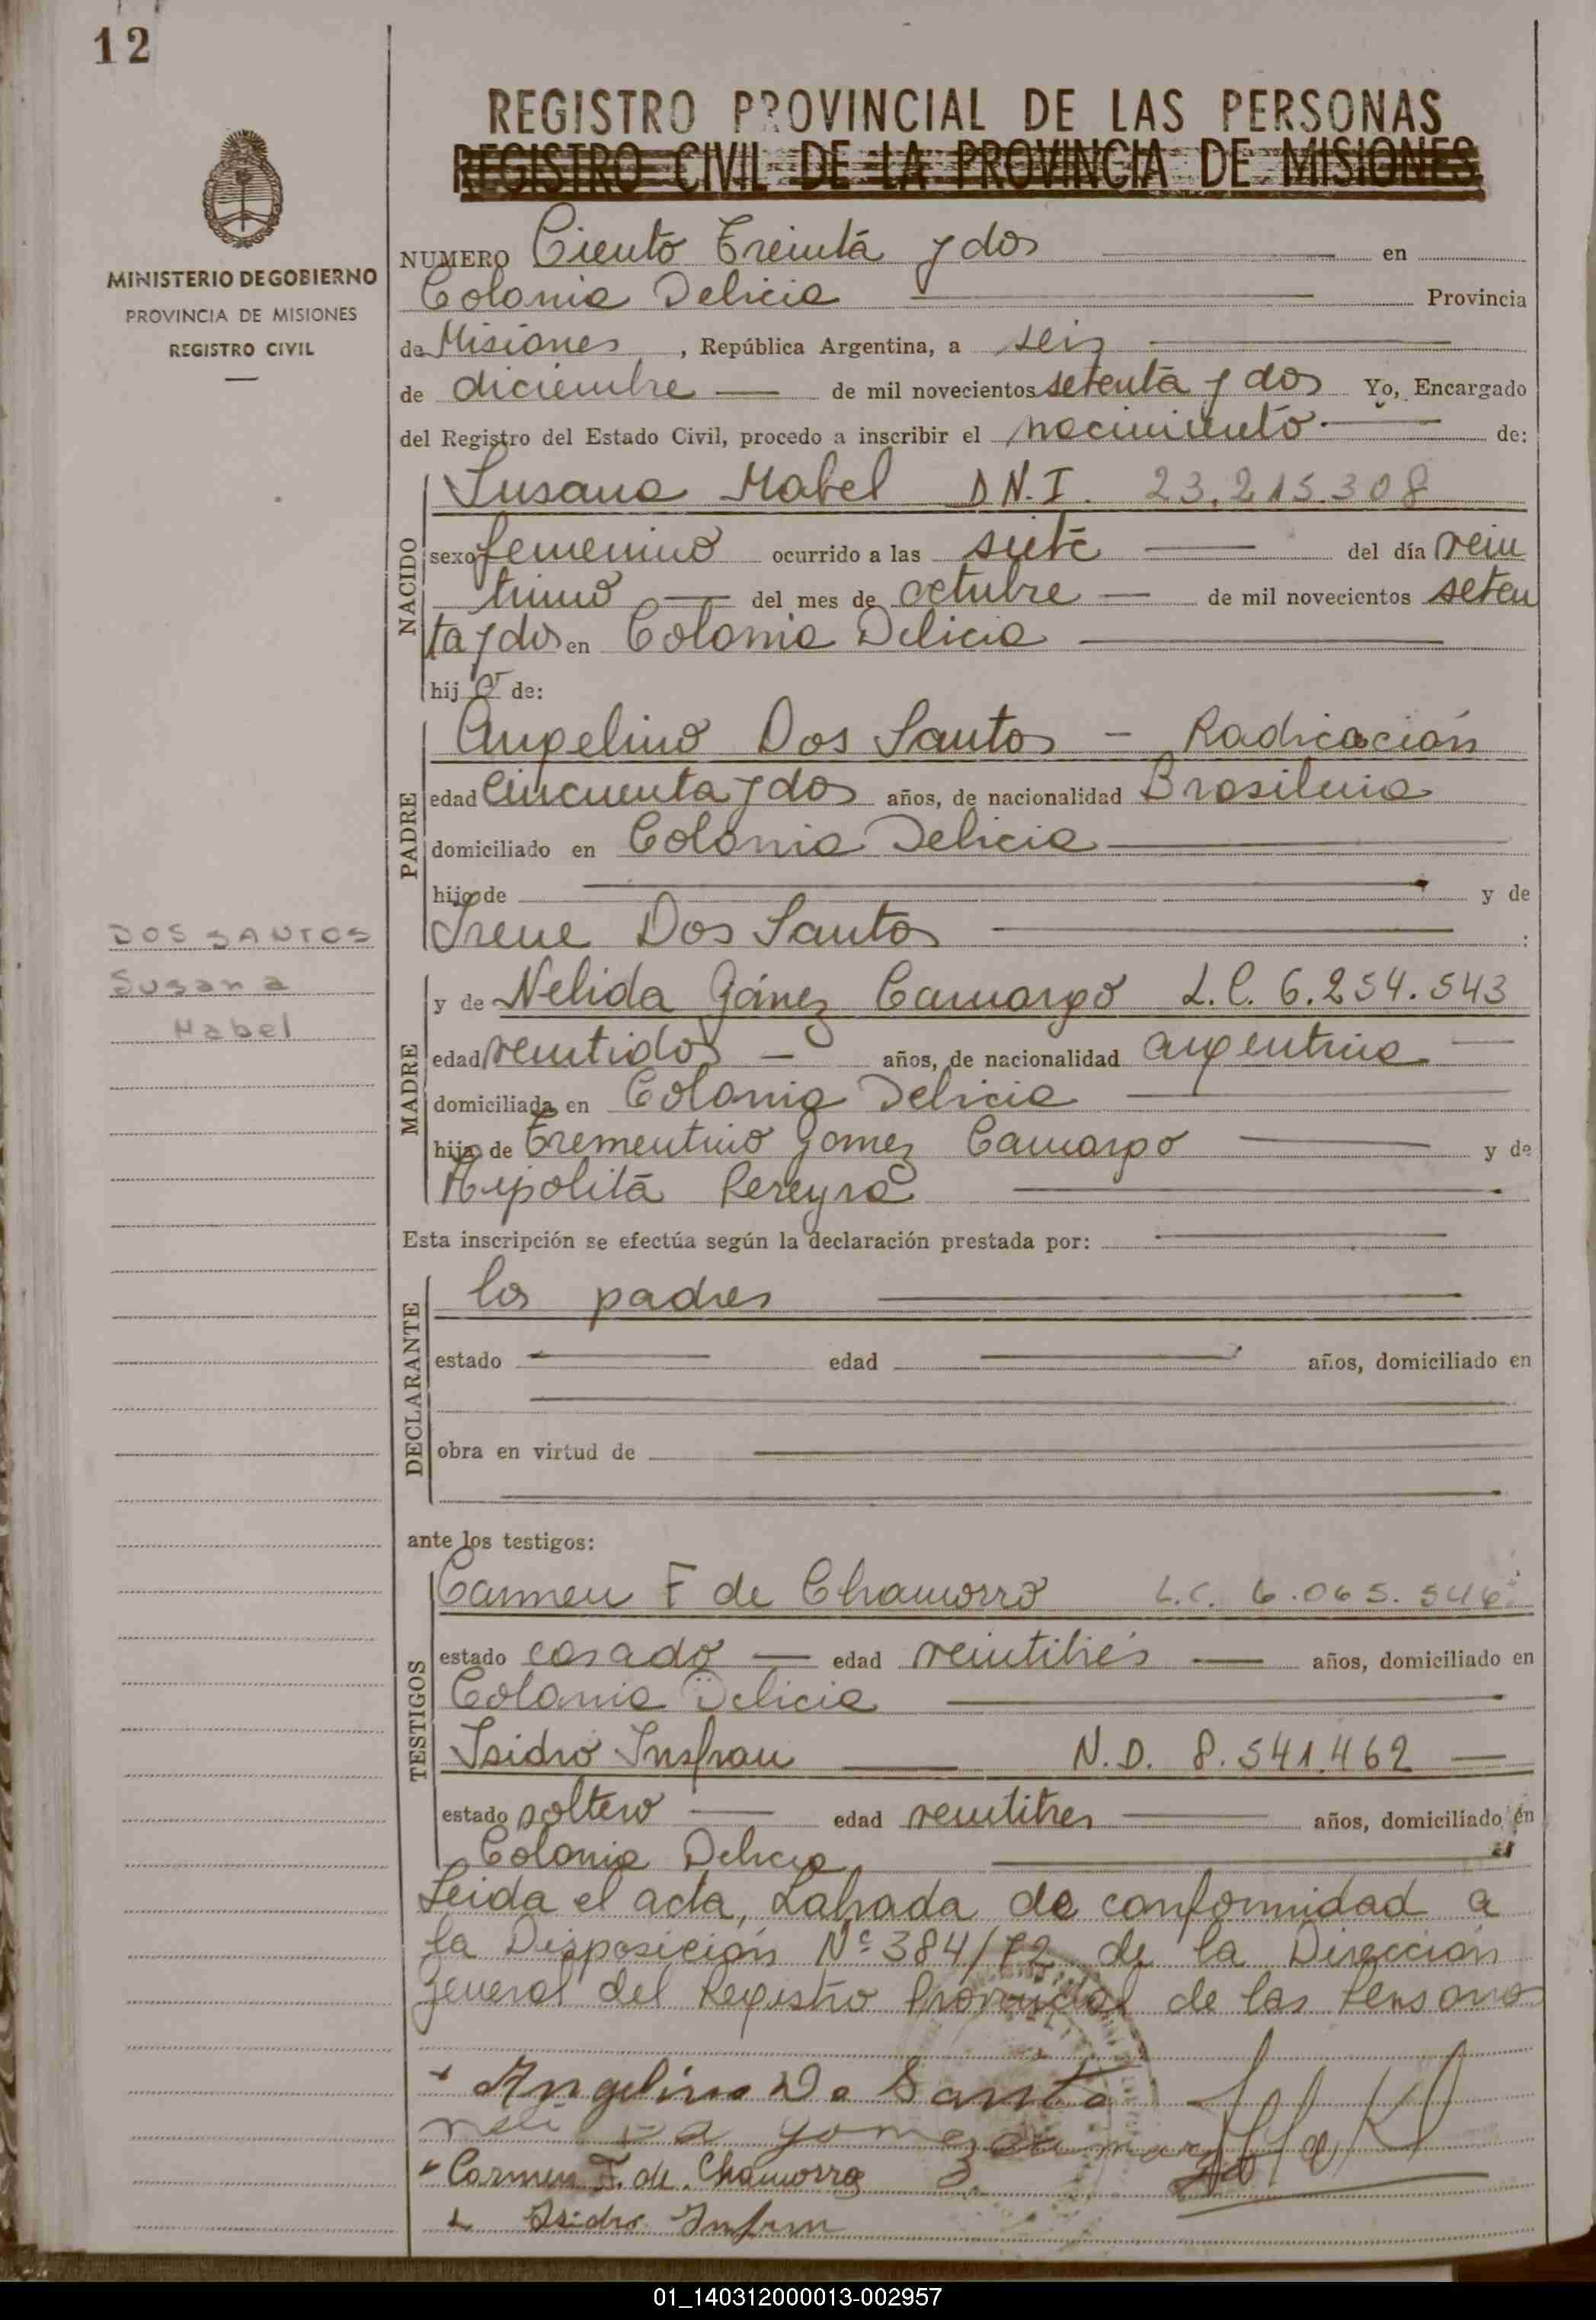 12
REGISTRO PROVINCIAL DE LAS PERSONAS
REGISTRO CIVIL DE LA PROVINCIA DE MISIONES
MINISTERIO DE GOBIERNO
PROVINCIA DE MISIONES
REGISTRO CIVIL
NUMERO Ciento Treinta y dos en
Colonia Delicia Provincia
de Misiones, República Argentina, a seis
de diciembre de mil novecientos setenta y dos Yo, Encargado
del Registro del Estado Civil, procedo a inscribir el nacimiento de:
NACIDO
Susana Mabel D.N.I. 23.215.308
sexo femenino ocurrido a las siete del día vein
tiuno del mes de octubre de mil novecientos seten
ta y dos en Colonia Delicia
hija de:
PADRE
Angelino Dos Santos - Radicación
edad Cincuenta y dos años, de nacionalidad Brasilenia
domiciliado en Colonia Delicia
hijo de y de
Irene Dos Santos
DOS SANTOS
Susana
Mabel
MADRE
y de Nelida Gómez Camargo L.C. 6.254.543
edad veintidos años, de nacionalidad argentina
domiciliada en Colonia Delicia
hija de Trementino Gomez Camargo y de
Hipolita Pereyra
Esta inscripción se efectúa según la declaración prestada por:
DECLARANTE
los padres
estado edad años, domiciliado en
obra en virtud de
ante los testigos:
TESTIGOS
Carmen F de Chamorro L.C. 6.065.546
estado casado edad veintitrés años, domiciliado en
Colonia Delicia
Isidro Insfran N.D. 8.541.462
estado soltero edad veintitres años, domiciliado en
Colonia Delicia
Leida el acta, Labrada de conformidad a
la Disposición Nº 384/72 de la Dirección
General del Registro Provincial de las Personas
Angelino Do Santo
neli da gomez camargo
Carmen F. de. Chamorro
Isidro Infran
01_140312000013-002957